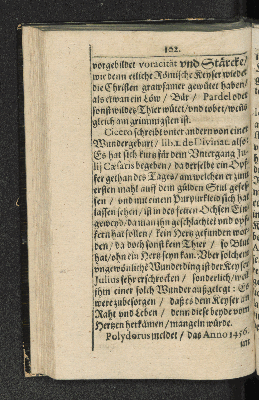 102.
vorgebildet voracität vnd Stärcke/
wie denn etliche Römische Keyser wieder
die Christen grawsamer gewütet haben/
als etwan ein Löw/ Bär/ Pardel oder
sonst wildes Thier wütet/ vnd tobet/ wens
gleich am grimmigsten ist.
Cicero schreibt unter andern von einer
Wundergeburt/ lib. 1. de Divinat. also:
Es hat sich kurtz für dem Vntergang Ju-
lij Cæsaris begeben/ da derselbe ein Opf-
fer gethan des Tages/ am welchen er zum
ersten mahl auff dem gülden Stul gesess-
sen/ vnd mit einem Purpurkleid sich hat
lassen sehen/ ist in des fetten Ochsen Ein-
geweyd/ da man jhn geschlachtet vnd opf-
fern hat sollen/ kein Hertz gefunden wor-
den/ da doch sonst kein Thier/ so Blut
hat/ ohn ein Hertz seyn kan. Vber solchem
vngewönliche Wunderding ist der Keyser
Julius sehr erschrocken/ sonderlich/ weil
jhm einer solch Wunder außgelegt: Es
were zubesorgen/ daß es dem Keyser an
Raht vnd Leben/ denn diese beyde vom
Hertzen herkämen/ mangeln würde.
Polydorus meldet/ das Anno 1456.